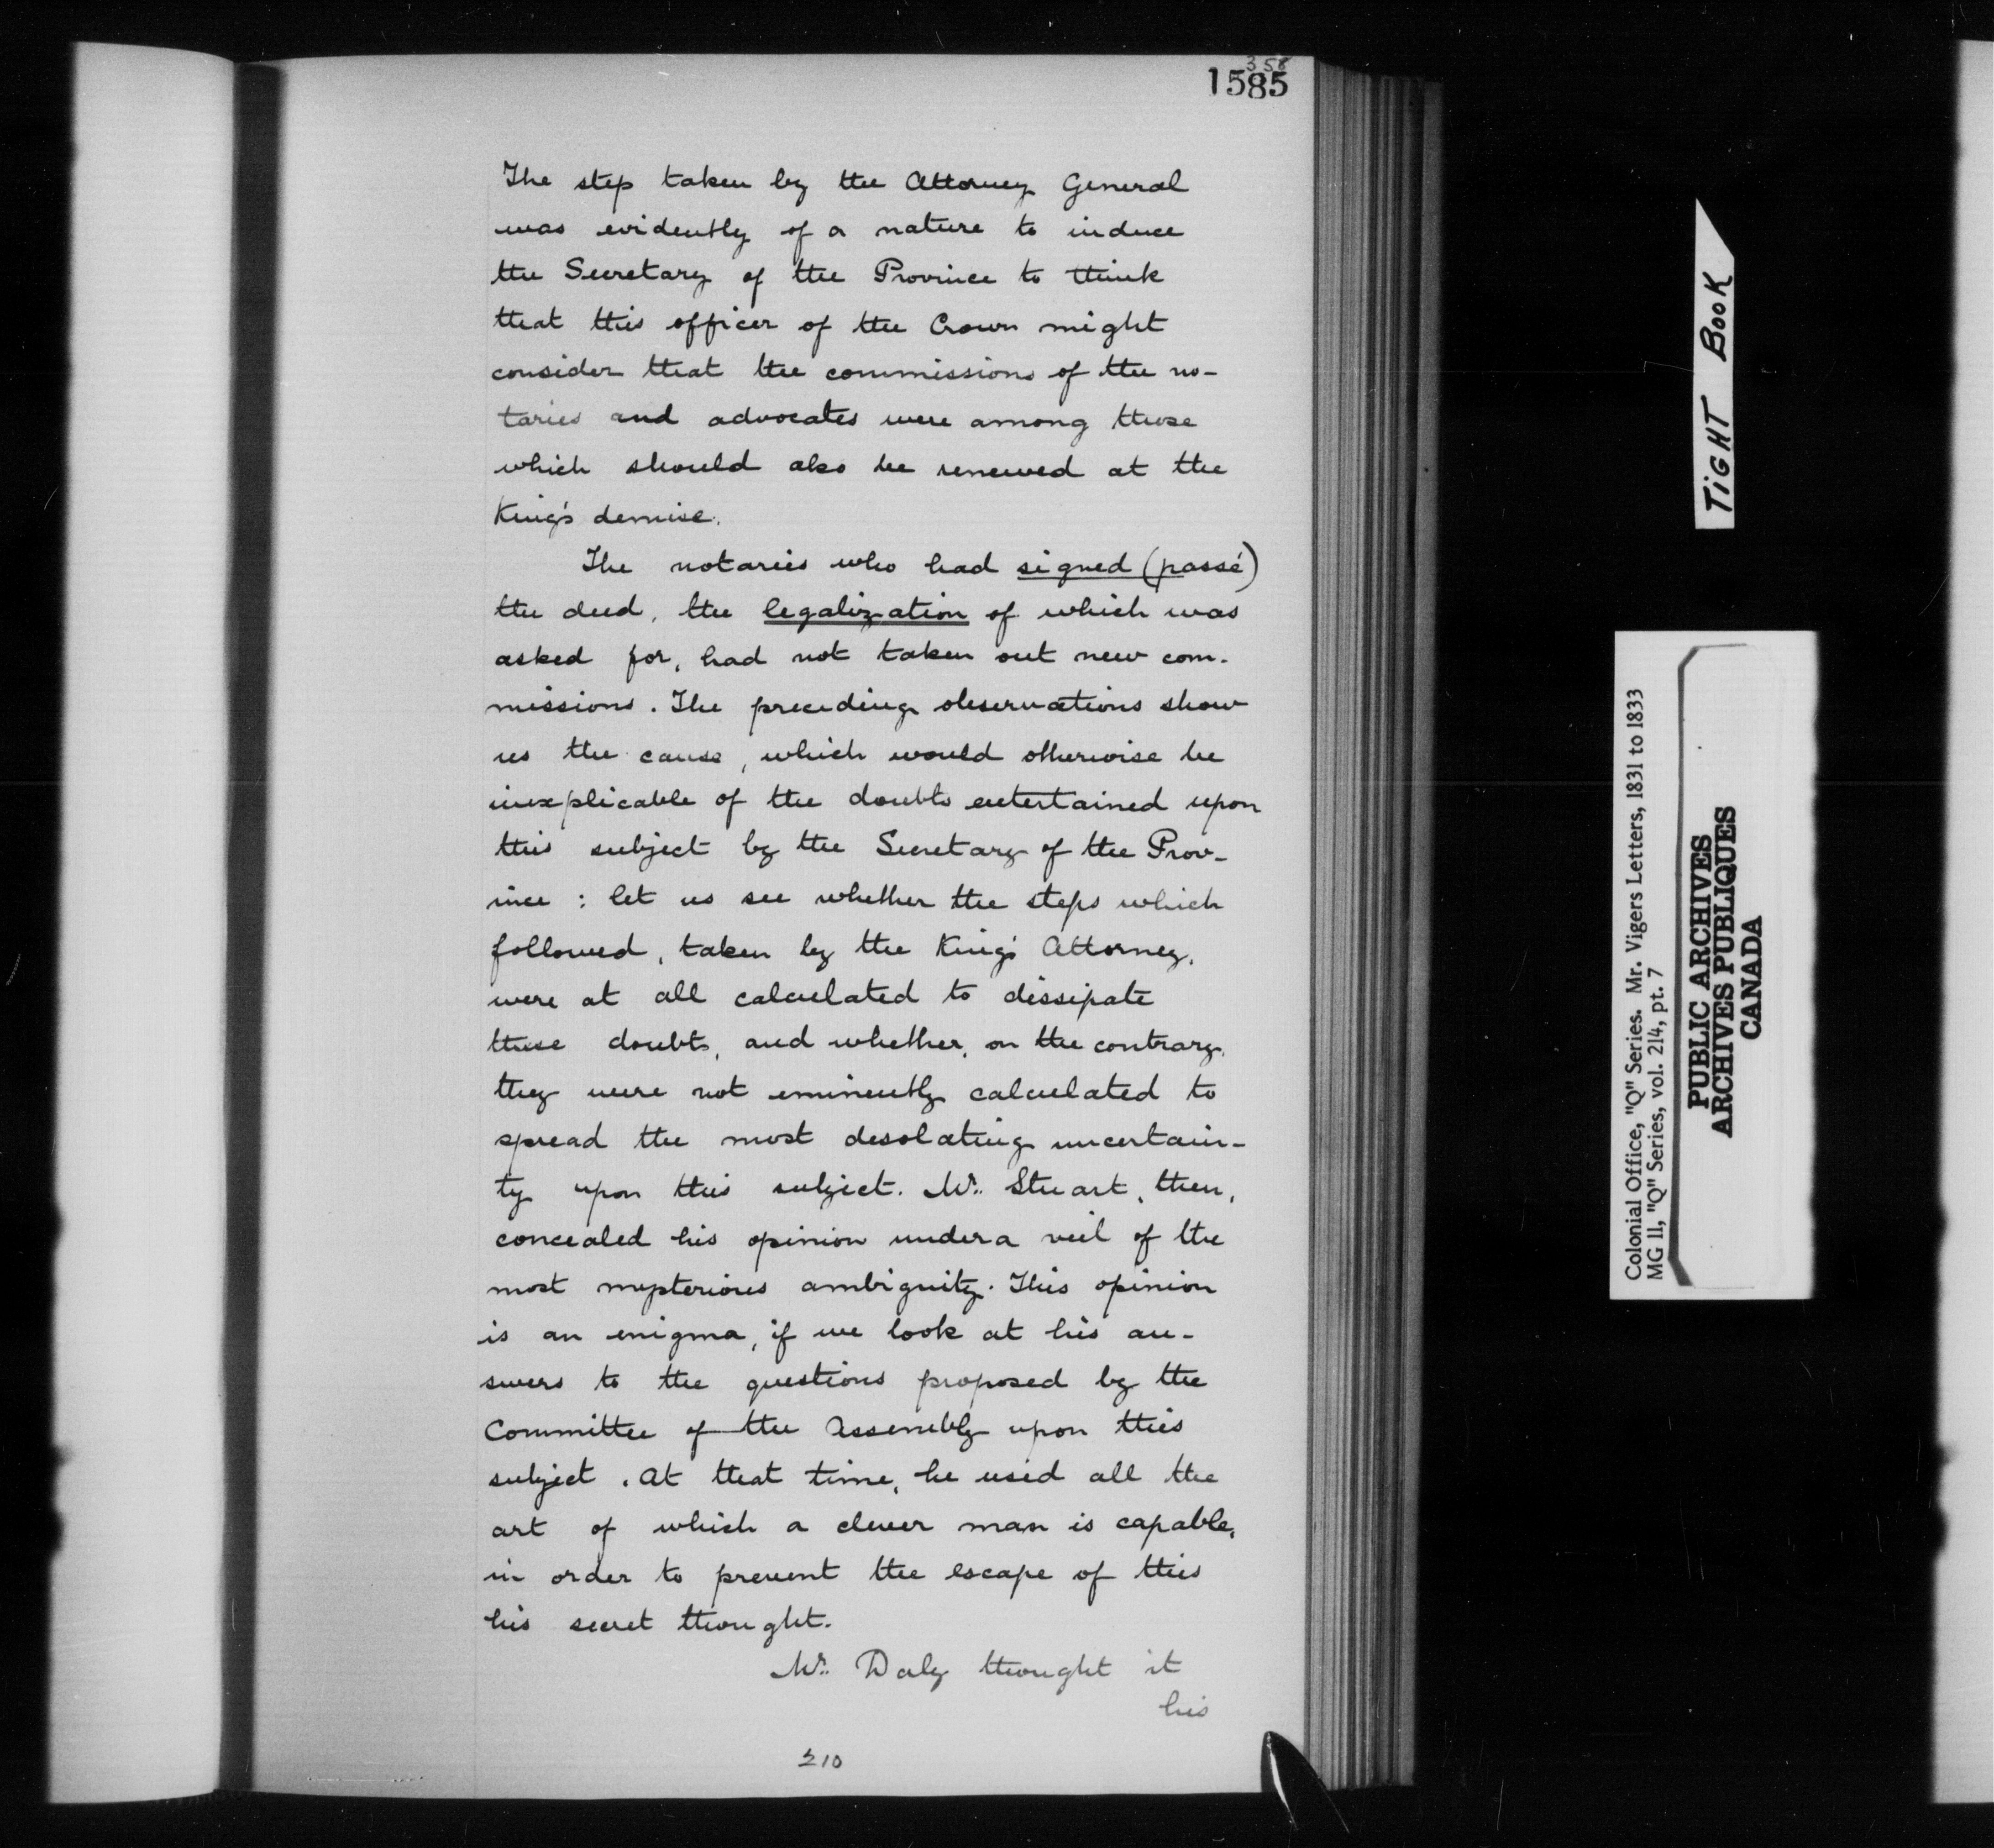 358
1585
The step taken by the Attorney General
was evidently of a nature to induce
the Secretary of the Province to think
that this officer of the Crown might
consider that the commissions of the no-
taries and advocates were among those
which should also be renewed at the
King's demise.
The notaries who had signed (passé)
the deed, the legalization of which was
asked for, had not taken out new com-
missions. The preceding observations show
us the cause, which would otherwise be
inexplicable of the doubts entertained upon
this subject by the Secretary of the Prov-
ince : let us see whether the steps which
followed, taken by the King's Attorney,
were at all calculated to dissipate
these doubts, and whether, on the contrary,
they were not eminently calculated to
spread the most desolating uncertain-
ty upon this subject. Mr. Stuart, then,
concealed his opinion under a veil of the
most mysterious ambiguity. This opinion
is an enigma, if we look at his an-
swers to the questions proposed by the
Committee of the Assembly upon this
subject. At that time, he used all the
art of which a clever man is capable,
in order to prevent the escape of this
his secret thought.
Mr. Daly thought it
his
210
TIGHT BOOK
Colonial Office, "Q" Series. Mr. Vigers Letters, 1831 to 1833
MG 11, "Q" Series, vol. 214, pt. 7
PUBLIC ARCHIVES
ARCHIVES PUBLIQUES
CANADA